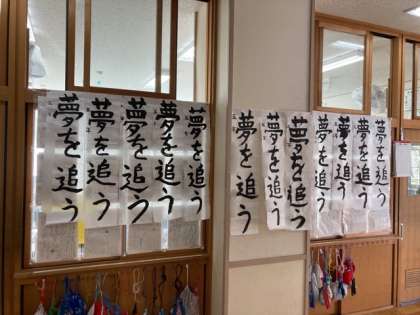 夢を追う
夢を追う
夢を追う
夢を追う
夢を追う
夢を追う
夢を追う
夢を追う
夢を追う
夢を追う
夢を追う
夢を追う